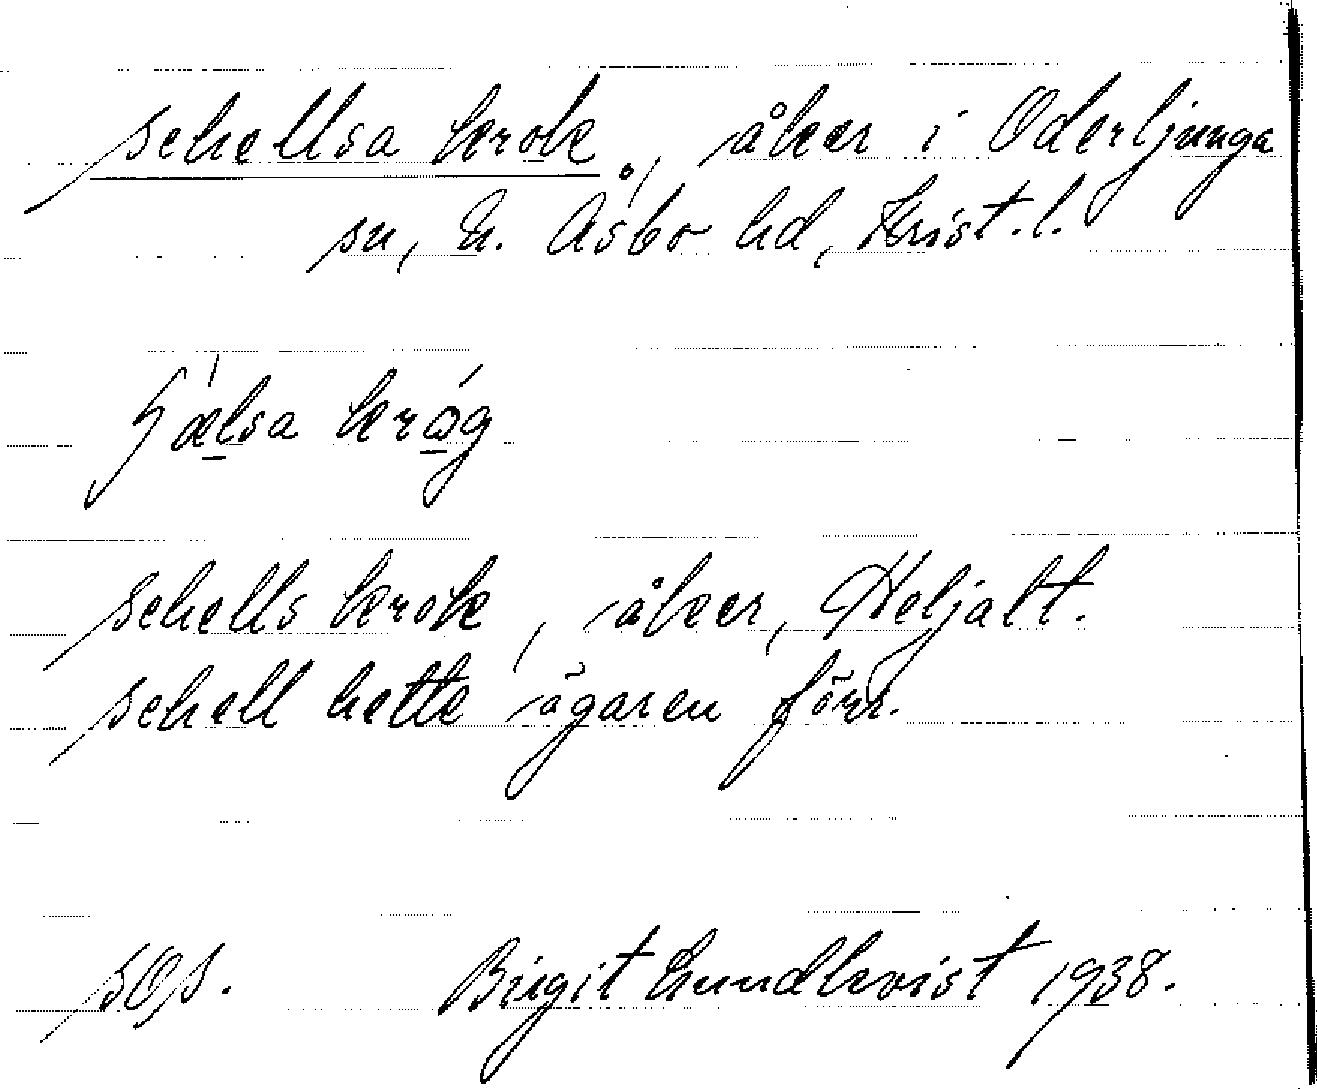 schellsa krok, åker i Oderljunga
sn, N. Åsbo hd, Krist. l.
krǫ́g
schells krok, åker, Heljalt.
schell hette ägaren förr.
SOS. Birgit Lundkvist 1938.